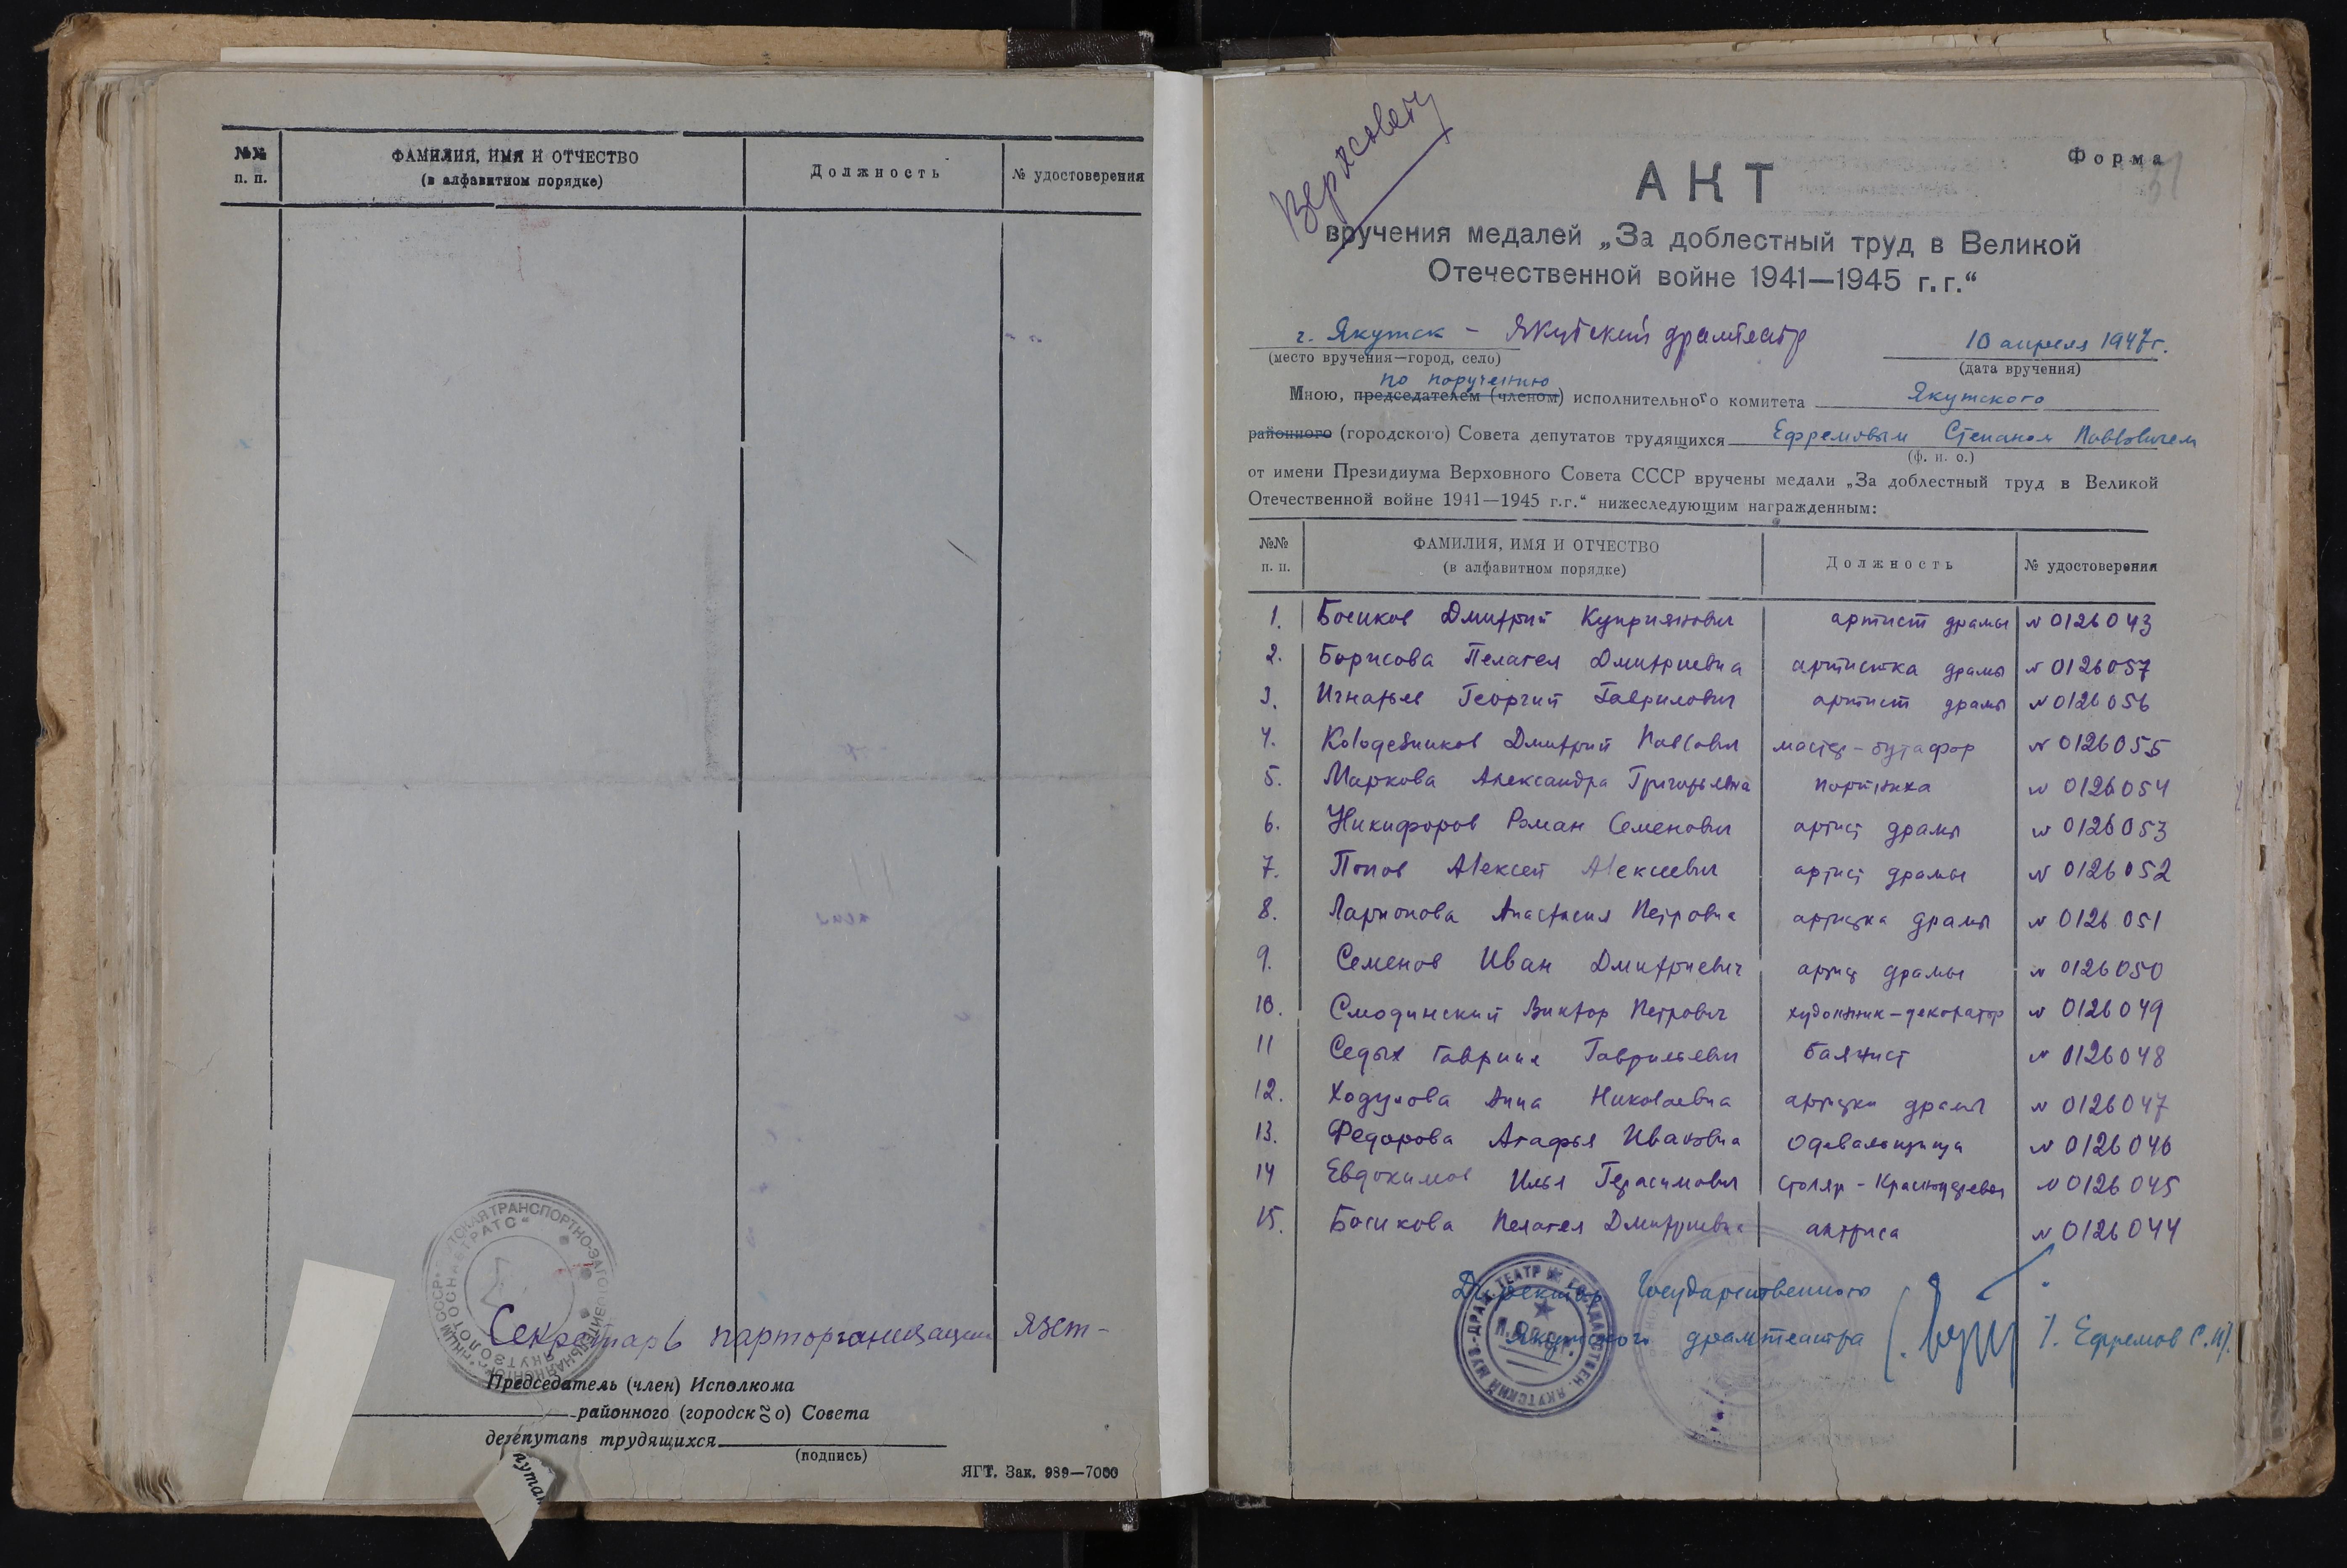 №№ п. п.
ФАМИЛИЯ, ИМЯ И ОТЧЕСТВО
(в алфавитном порядке)
Должность
№ удостоверения
Секретарь парторганизации ЯЗСТ-
Председатель (член) Исполкома
районного (городского) Совета
трудящихся
(подпись)
ЯГТ. Зак. 989—7000
Форма
АКТ
вручения медалей „За доблестный труд в Великой
Отечественной войне 1941—1945 г.г.“
г. Якутск - Якутский драмтеатр 10 апреля 1947г.
(место вручения—город, село)
(дата вручения)
по поручению
Мною, председателем (членом) исполнительного комитета Якутского
районного (городского) Совета депутатов трудящихся Ефремовым Степаном Павловичем
(ф. и. о.)
от имени Президиума Верховного Совета СССР вручены медали „За доблестный труд в Великой
Отечественной войне 1941—1945 г.г.“ нижеследующим награжденным:
№№ п. п.
ФАМИЛИЯ, ИМЯ И ОТЧЕСТВО
(в алфавитном порядке)
Должность
№ удостоверения
1. Босиков Дмитрий Куприянович артист драмы № 0126043
2. Борисова Пелагея Дмитриевна артистка драмы № 0126057
3. Игнатьев Георгий Гаврилович артист драмы № 0126056
4. Колодезников Дмитрий Павлович мастер-бутафор № 0126055
5. Маркова Александра Григорьевна портниха № 0126054
6. Никифоров Роман Семенович артист драмы № 0126053
7. Попов Алексей Алексеевич артист драмы № 0126052
8. Ларионова Анастасия Петровна артистка драмы № 0126051
9. Семенов Иван Дмитриевич артист драмы № 0126050
10. Смодинский Виктор Петрович художник-декоратор № 0126049
11 Седых Гавриил Гаврильевич баянист № 0126048
12. Ходулова Анна Николаевна артистка драмы № 0126047
13. Федорова Агафья Ивановна одевальщица № 0126046
14 Евдокимов Илья Герасимович столяр - № 0126045
15. Босикова Пелагея Дмитриевна актриса № 0126044
Директор Государственного
Якутского драмтеатра
Ефремов С.П.